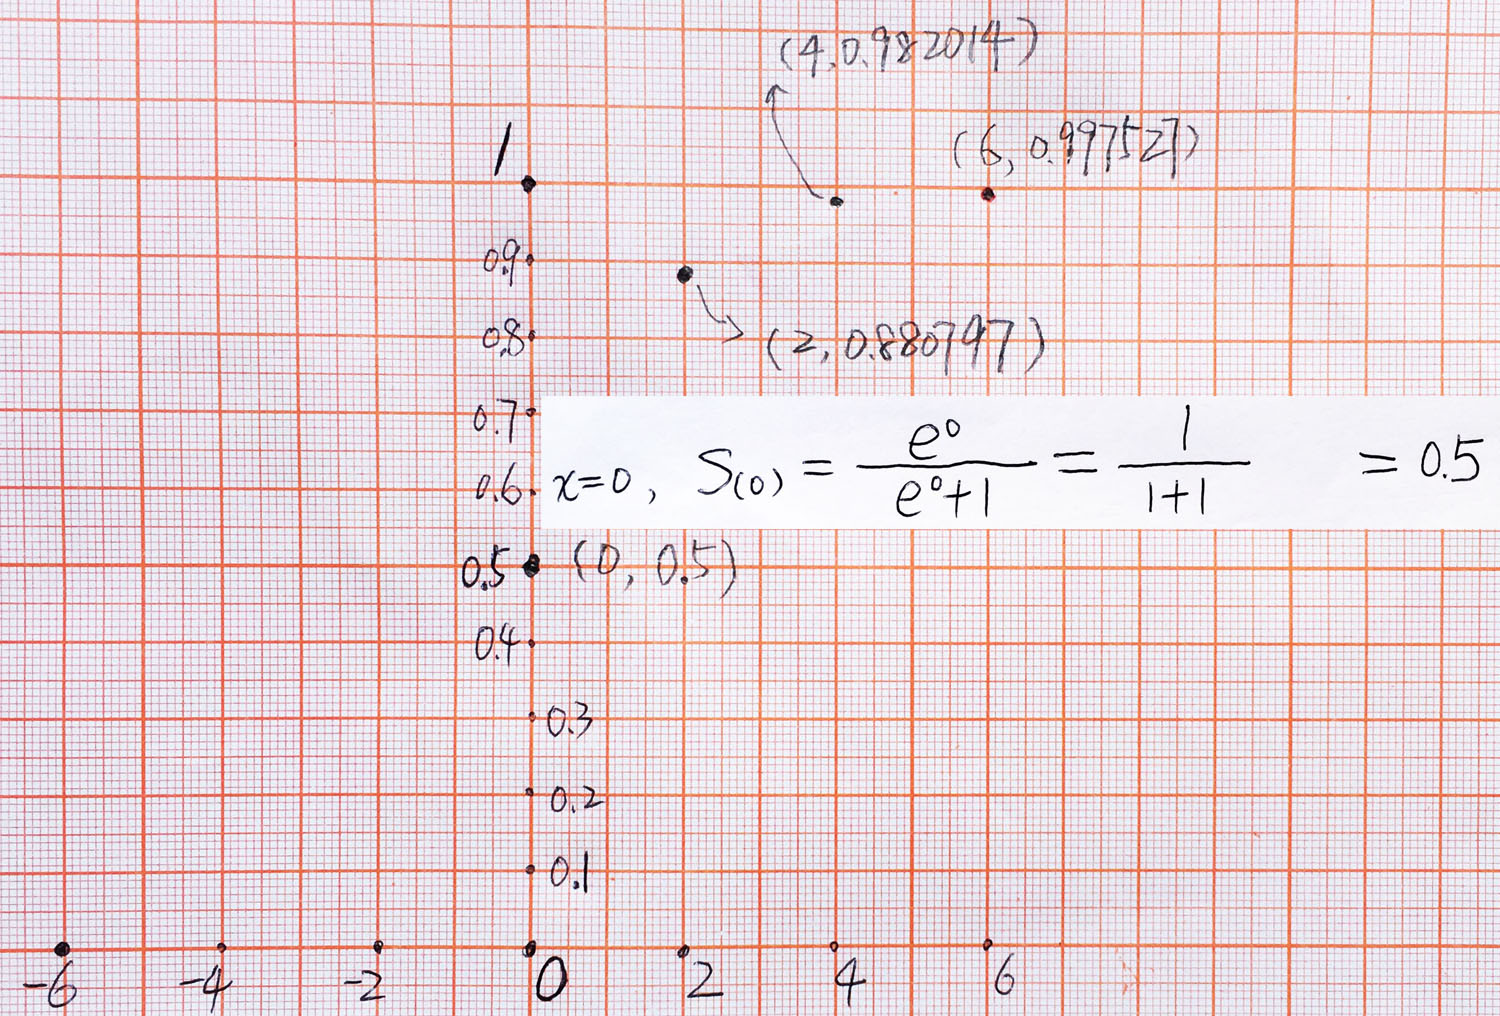 (4, 0.982014)
1
(6, 0.997527)
0.9
0.8
(2, 0.880797)
0.7
0.6
x=0, S(0) = e⁰/(e⁰+1) = 1/(1+1) = 0.5
0.5 (0, 0.5)
0.4
0.3
0.2
0.1
-6 -4 -2 0 2 4 6